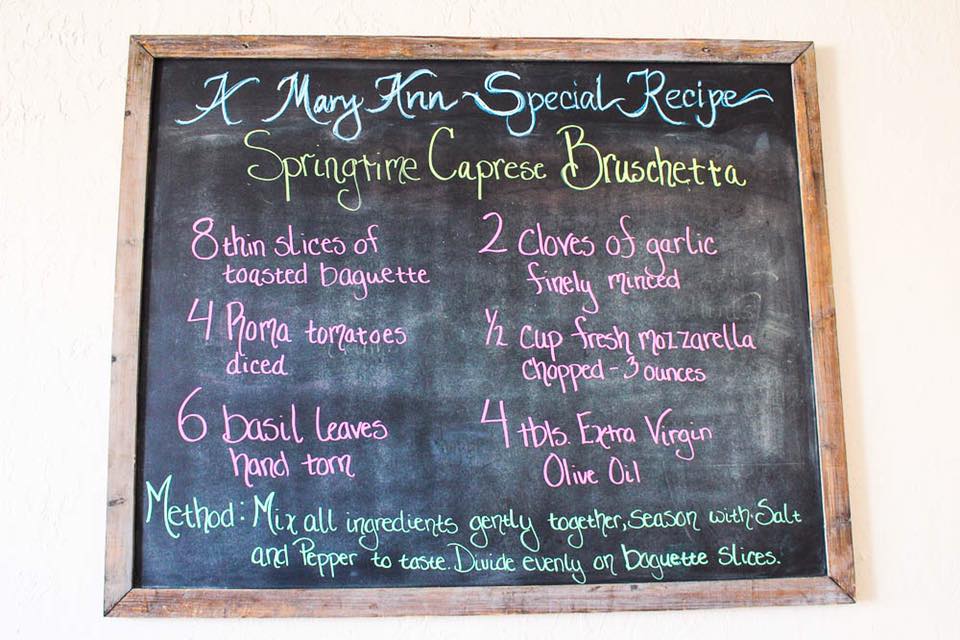 A Mary Ann Special Recipe
Springtime Caprese Bruschetta
8 thin slices of
toasted baguette
2 Cloves of garlic
finely minced
4 Roma tomatoes
diced
1/2 Cup fresh mozzarella
Chopped - 3 ounces
6 basil leaves
hand torn
4 tbls. Extra Virgin
Olive Oil
Method: Mix all ingredients gently together, season with Salt
and Pepper to taste. Divide evenly on baguette slices.